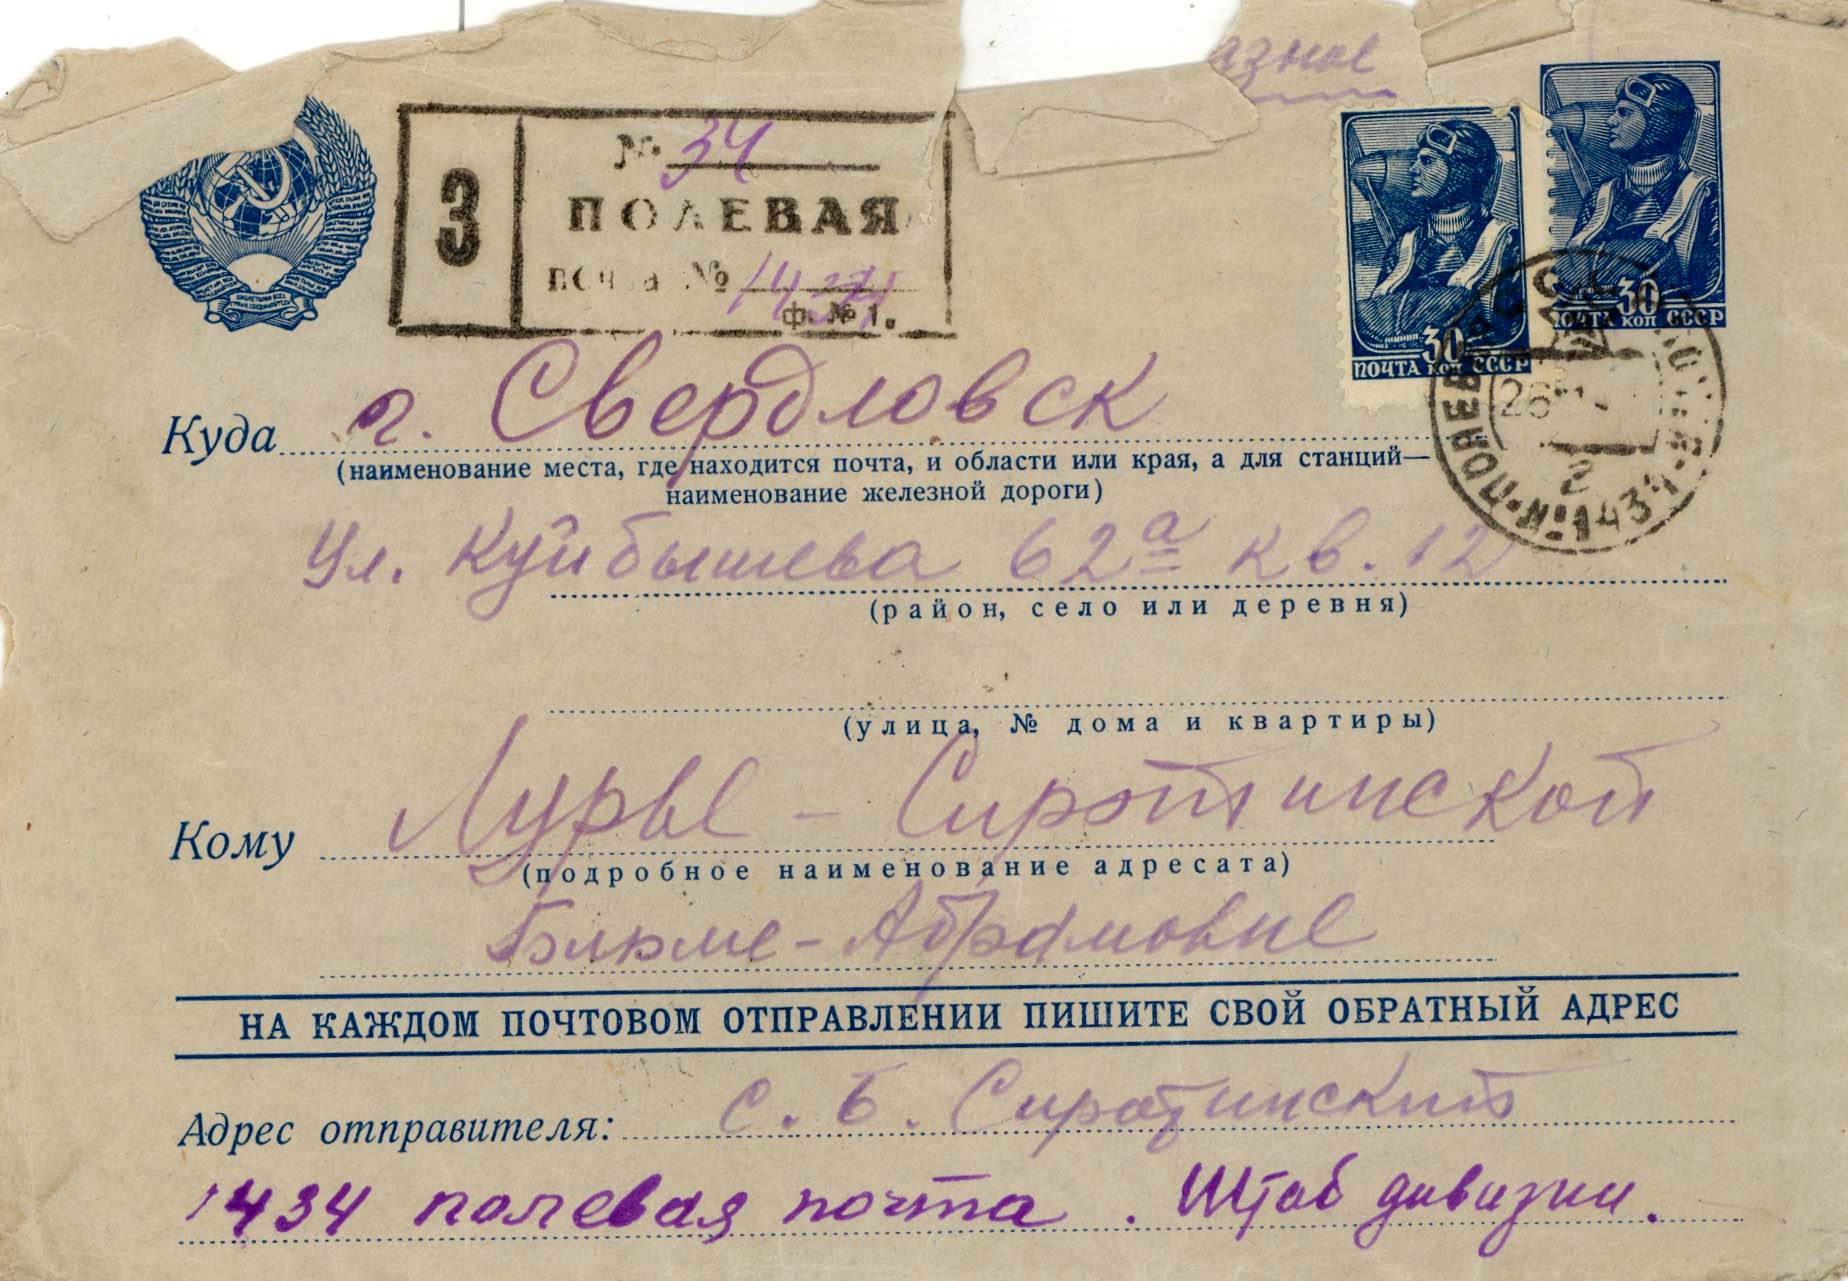 азное
З
№ 34
ПОЛЕВАЯ
почта № 1434
ф. № 1.
30
ПОЧТА коп СССР
30
ПОЧТА коп СССР
26
2
1434
Куда г. Свердловск
(наименование места, где находится почта, и области или края, а для станций—
наименование железной дороги)
ул. Куйбышева 62а кв. 12
(район, село или деревня)
(улица, № дома и квартиры)
Кому Лурье - Сиротинской
(подробное наименование адресата)
Блюме - Абрамовне
НА КАЖДОМ ПОЧТОВОМ ОТПРАВЛЕНИИ ПИШИТЕ СВОЙ ОБРАТНЫЙ АДРЕС
Адрес отправителя: С. Б. Сиротинский
1434 полевая почта. Штаб дивизии.